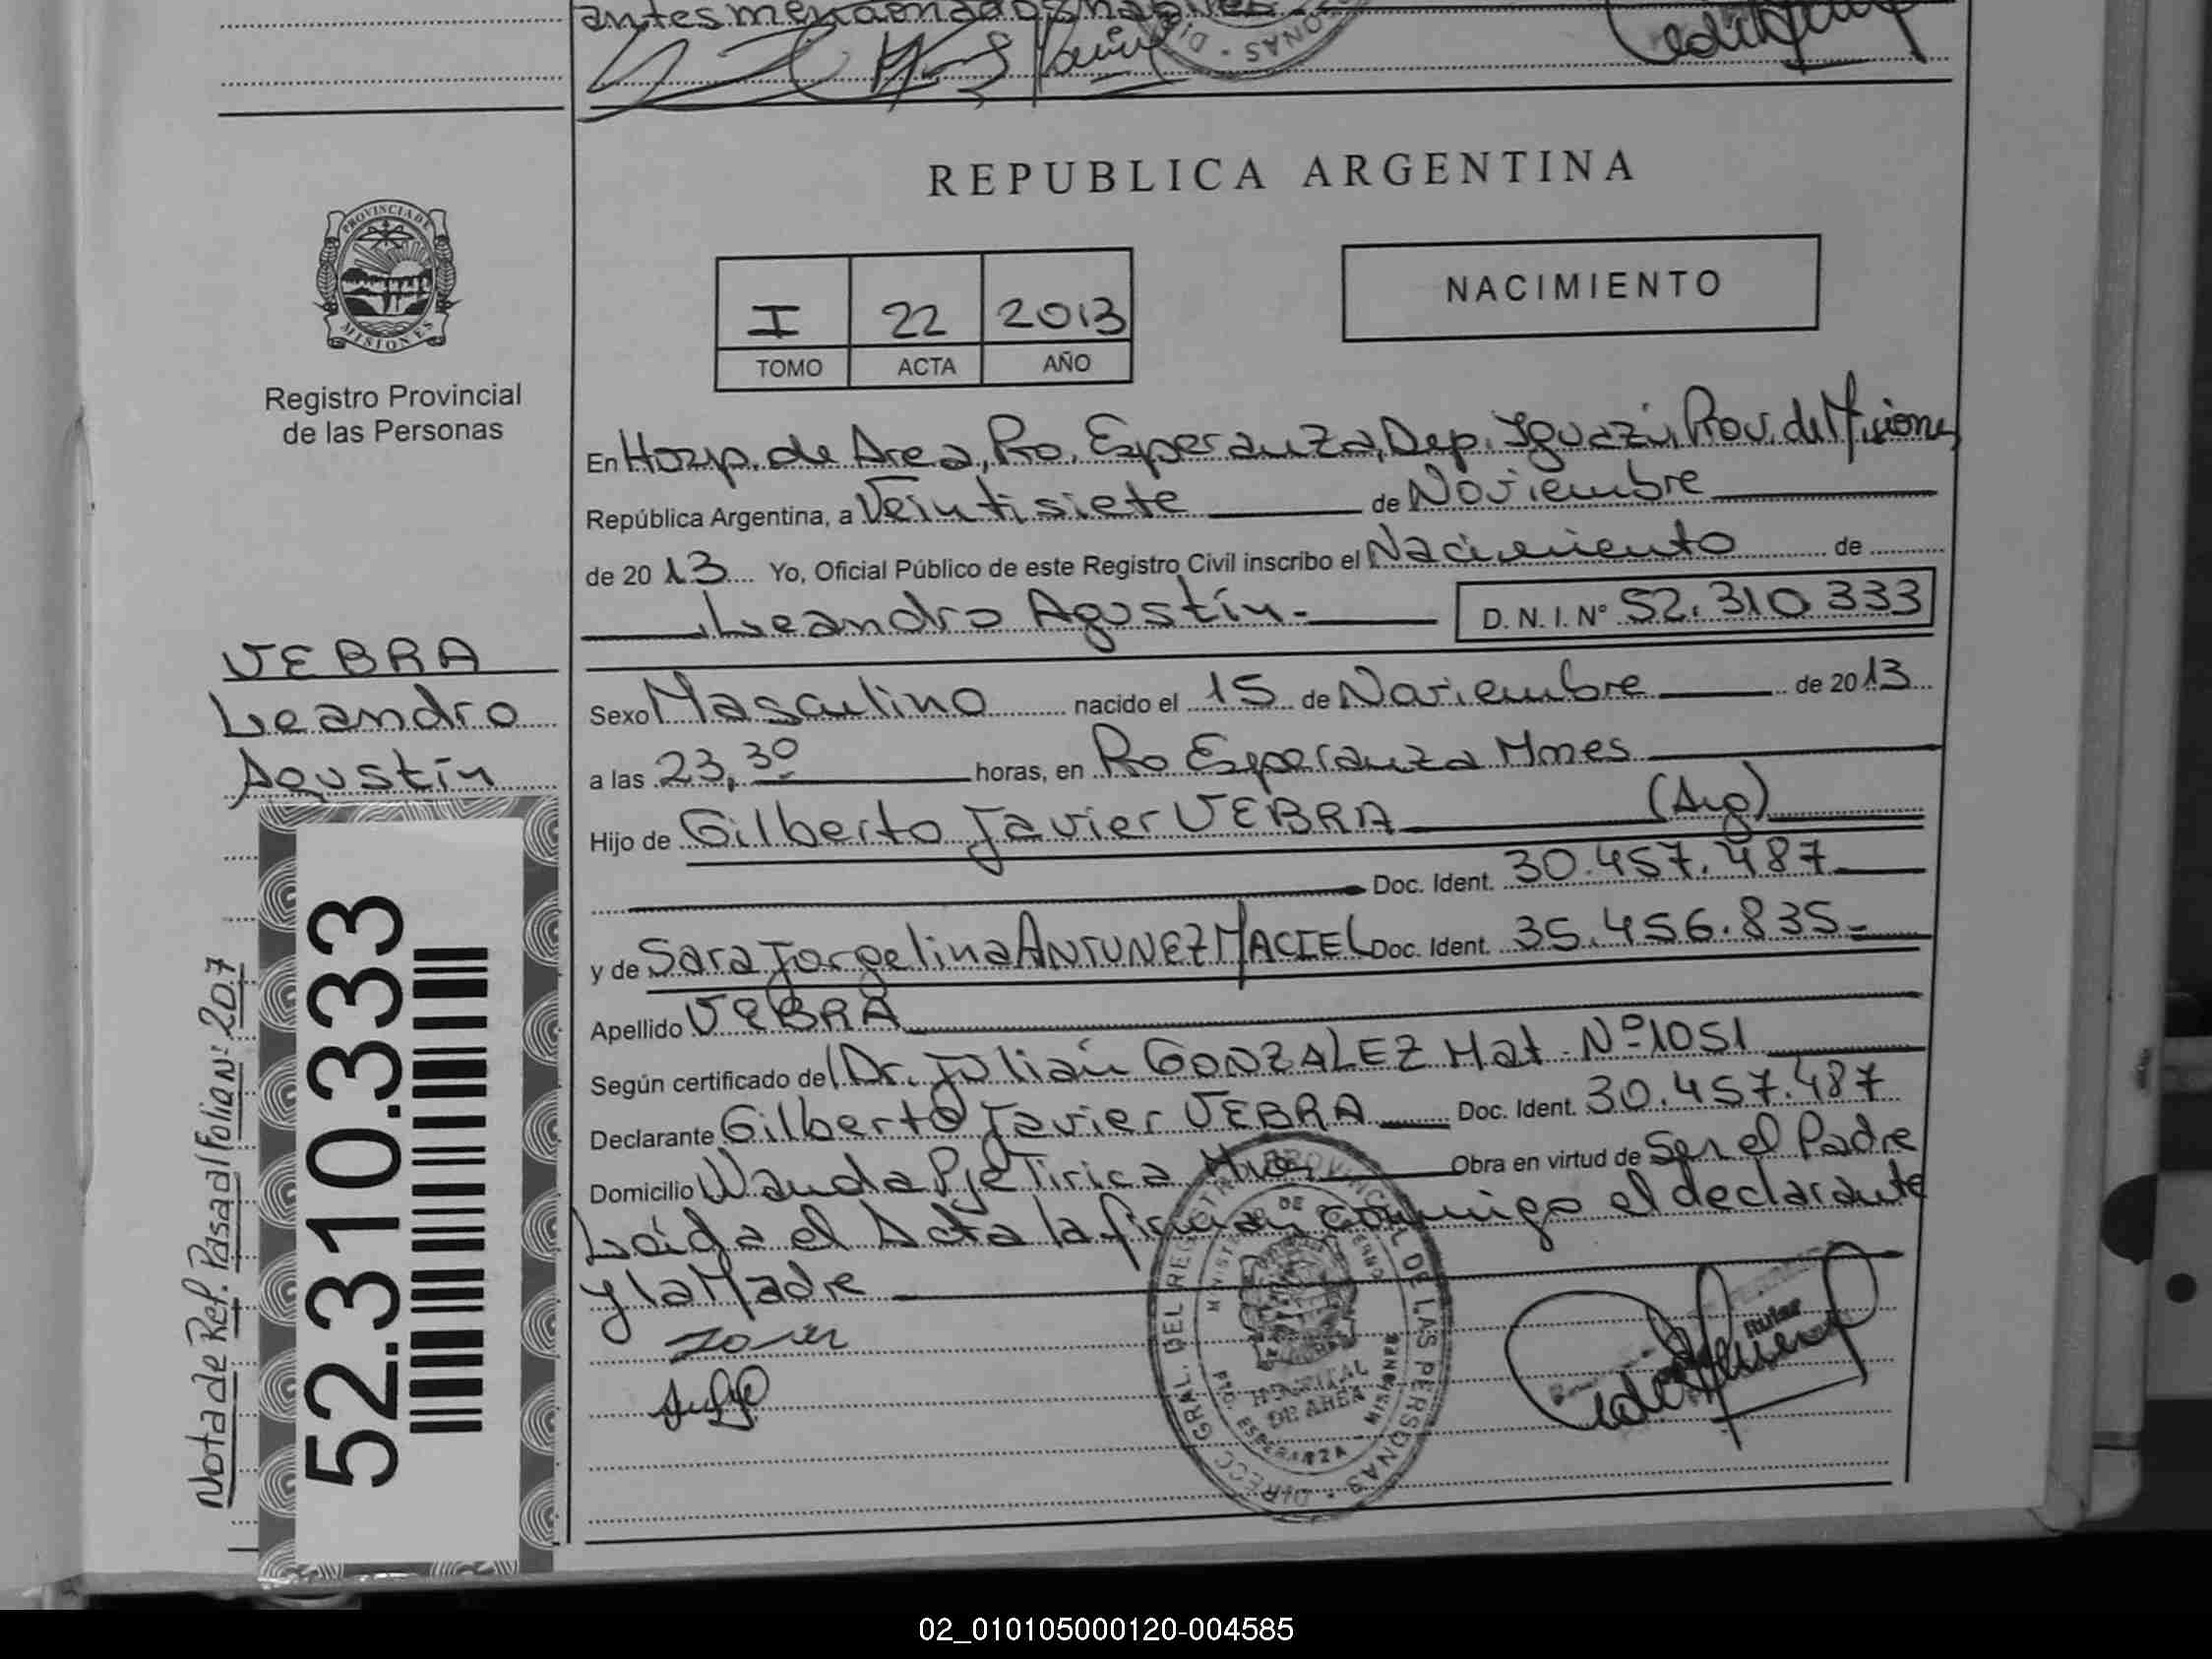 antes mencionados hábiles
REPUBLICA ARGENTINA
PROVINCIA DE
MISIONES
Registro Provincial
de las Personas
I 22 2013
TOMO ACTA AÑO
NACIMIENTO
En Hosp. de Area, Pto. Esperanza, Dep. Iguazú, Prov. de Misiones
República Argentina, a Veintisiete de Noviembre
de 2013 Yo, Oficial Público de este Registro Civil inscribo el Nacimiento de
Leandro Agustín.- D. N. I. Nº 52.310.333
VEBRA
Leandro
Agustín
Sexo Masculino nacido el 15 de Noviembre de 2013
a las 23,30 horas, en Pto Esperanza Mnes
Hijo de Gilberto Javier VEBRA (Arg)
Doc. Ident. 30.457.487
y de Sara Jorgelina ANTUNEZ MACIEL Doc. Ident. 35.456.835
Apellido VEBRA
Según certificado del Dr. Julián GONZALEZ Mat. Nº 1051
Declarante Gilberto Javier VEBRA Doc. Ident. 30.457.487
Domicilio Wanda Pje Tirica Obra en virtud de Ser el Padre
Leída el Acta la firman conmigo el declarante
y la Madre
Nota de Ref. Pasa al Folio Nº 207
52.310.333
DIRECC. GRAL. DEL REGISTRO PROVINCIAL DE LAS PERSONAS
MINISTERIO DE GOBIERNO
HOSPITAL
DE AREA
PTO. ESPERANZA - MISIONES
02_010105000120-004585